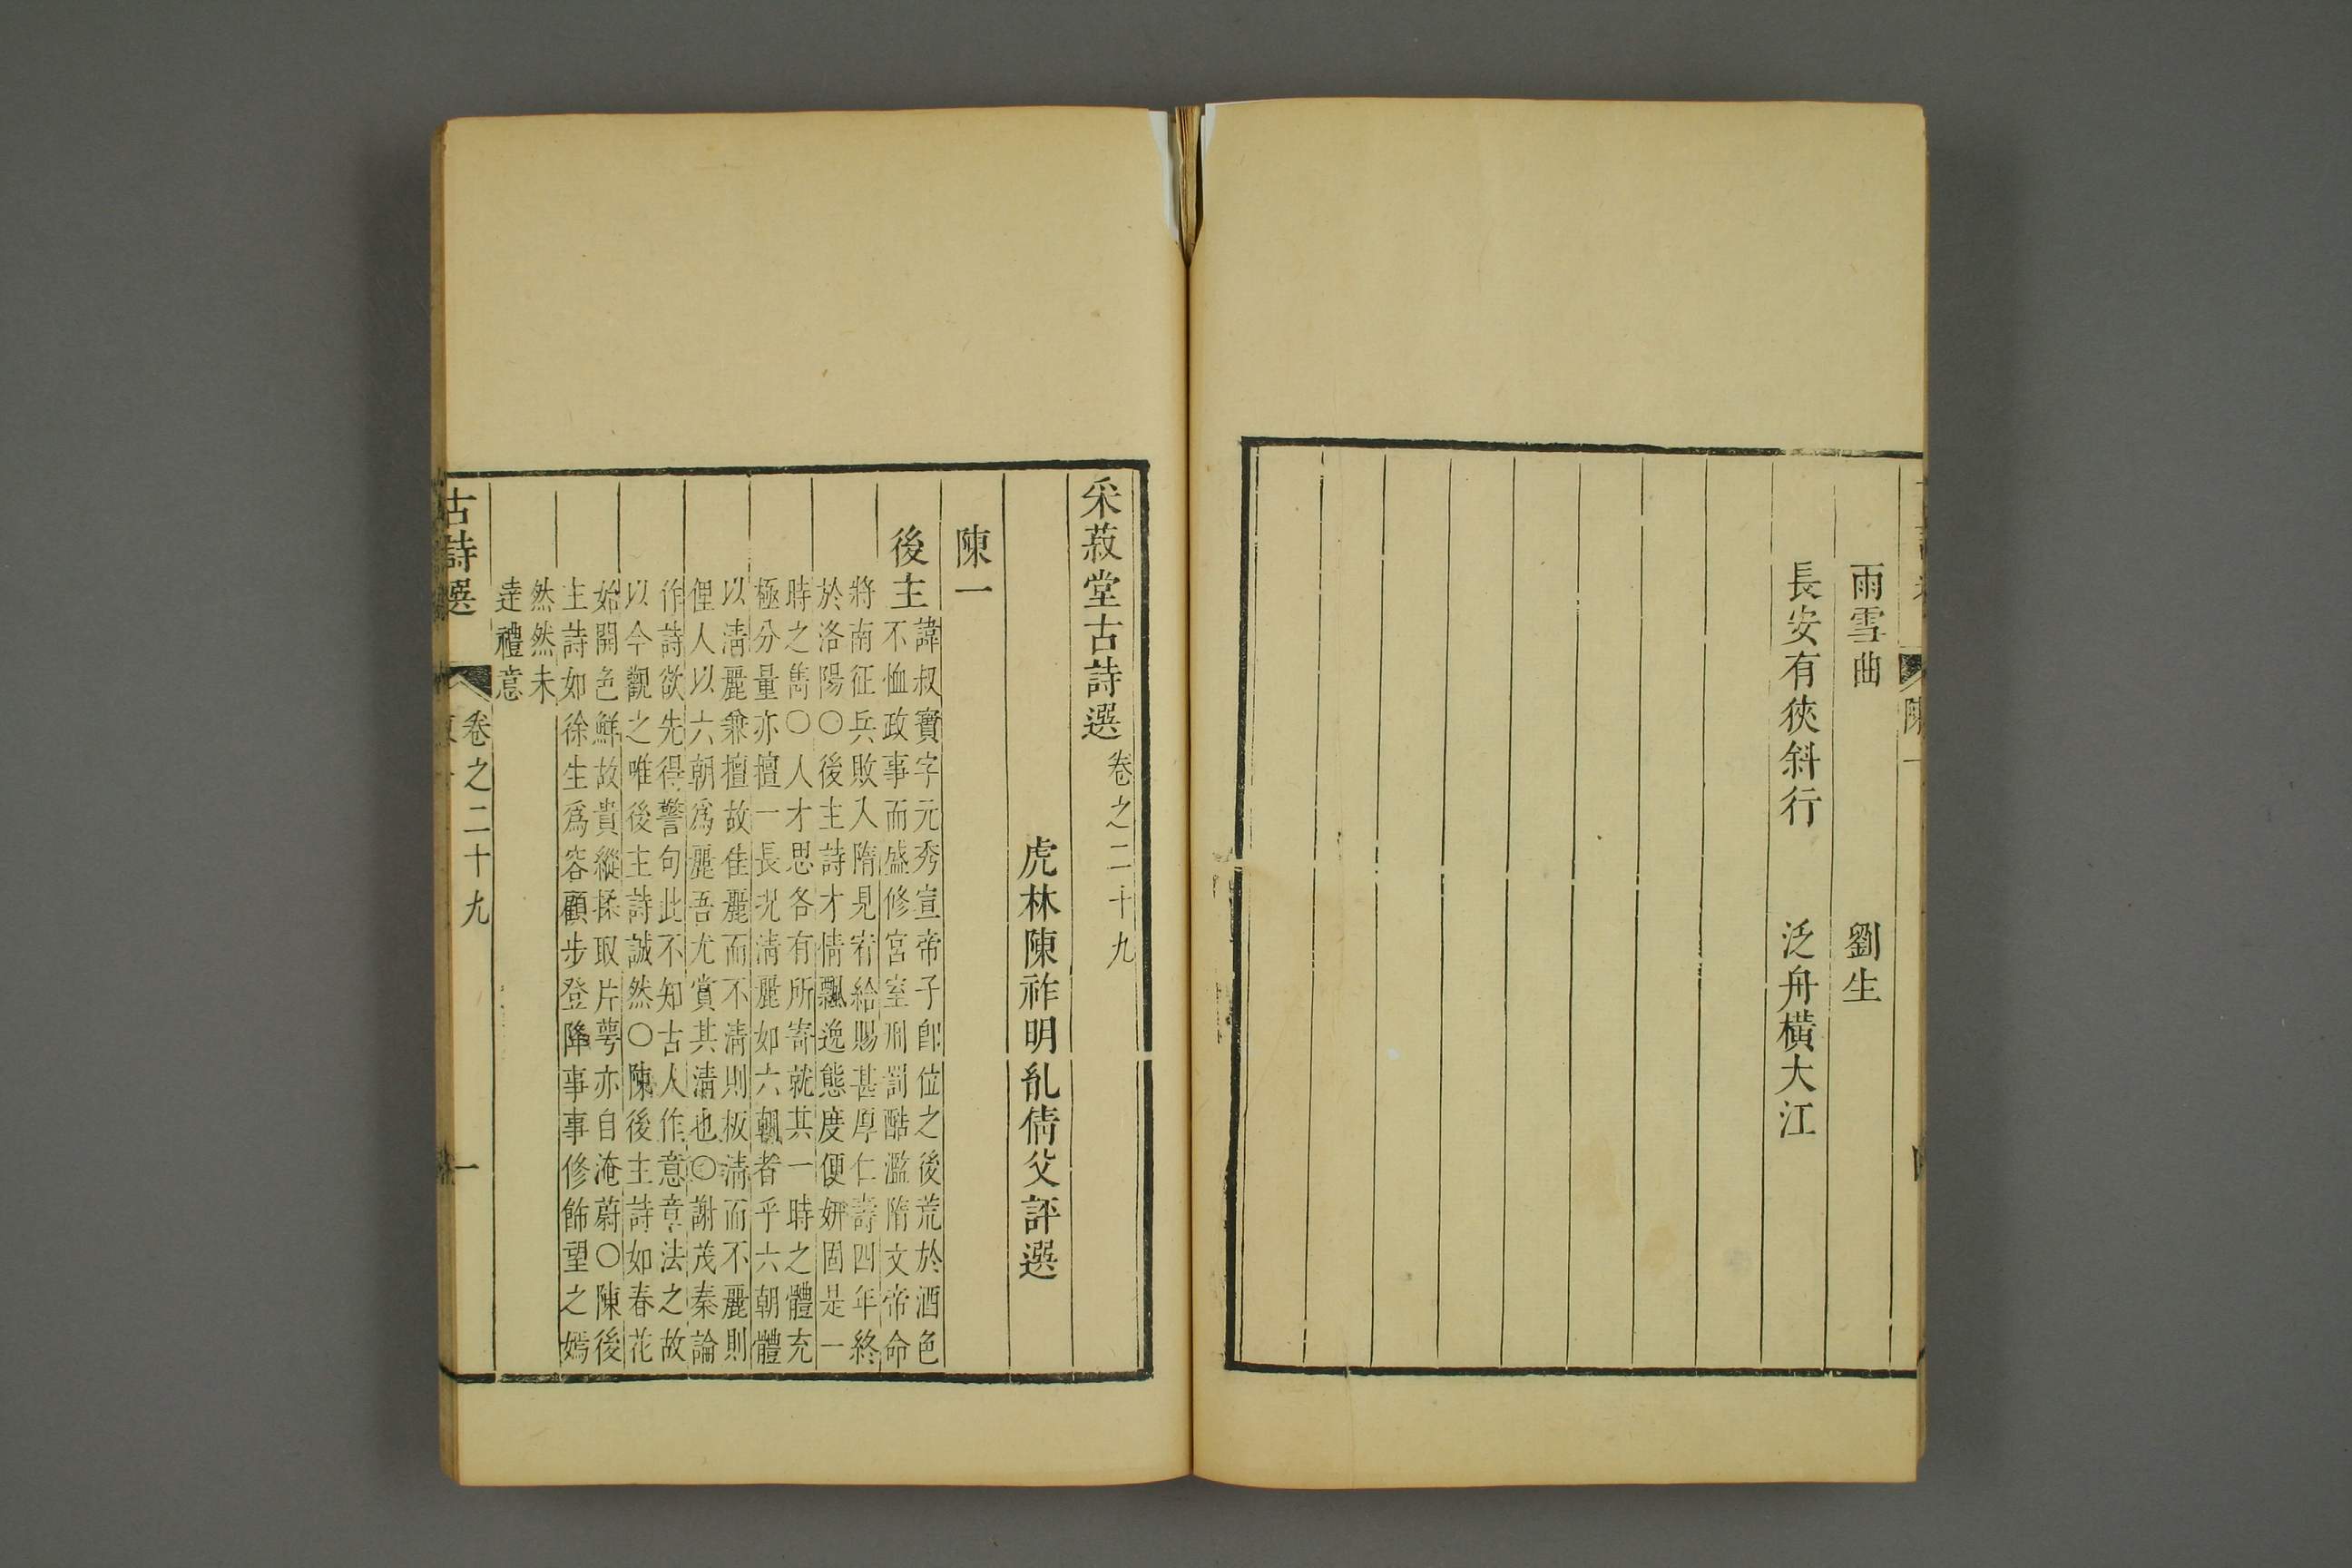 雨雪曲　劉生
長安有狹斜行　泛舟橫大江
采菽堂古詩選卷之二十九
虎林陳祚明胤倩父評選
陳一
後主
諱叔寶字元秀宣帝子卽位之後荒於酒色
不恤政事而盛修宮室刑罰酷濫隋文帝命
將南征兵敗入隋見宥給賜甚厚仁壽四年終
於洛陽○後主詩才情飄逸態度便妍固是一
時之雋○人才思各有所寄就其一時之體充
極分量亦擅一長况清麗如六朝者乎六朝體
以清麗兼擅故佳麗而不清則板清而不麗則
俚人以六朝爲麗吾尤賞其清也○謝茂秦論
作詩欲先得警句此不知古人作意章法之故
以今觀之唯後主詩誠然○陳後主詩如春花
始開色鮮故貴縱揉取片萼亦自淹蔚○陳後
主詩如徐生爲容顧步登降事事修飾望之嫣
然然未
達禮意
古詩選　卷之二十九　一